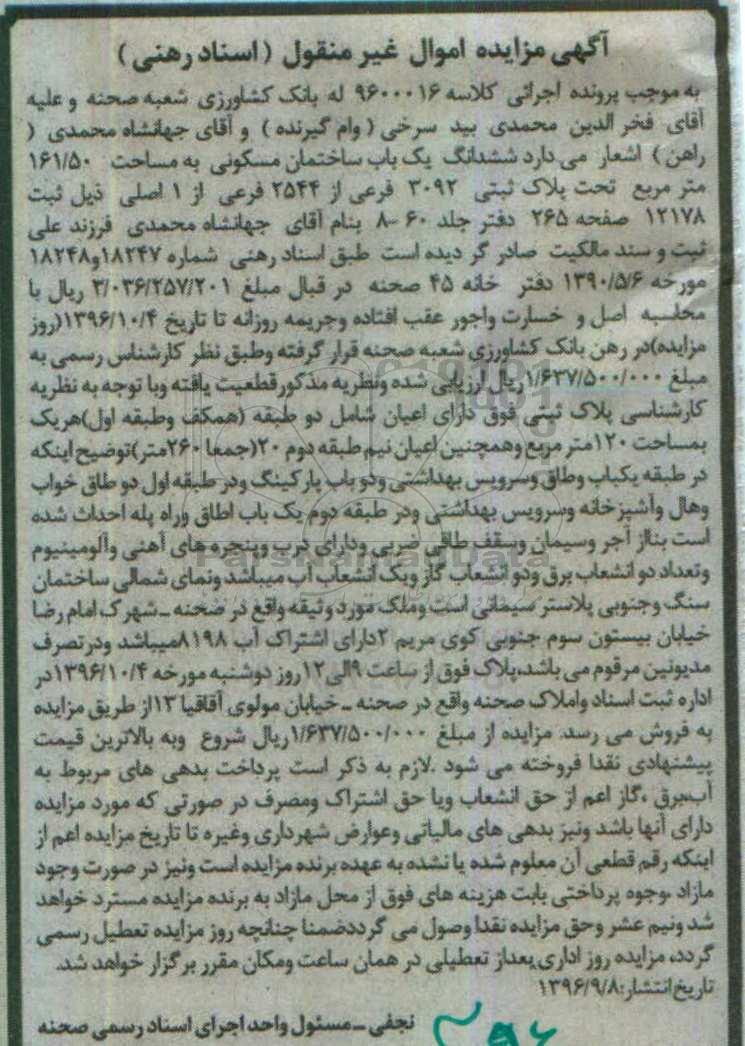 آگهی مزایده اموال غیر منقول (اسناد رهنی)
به موجب پرونده اجرائی کلاسه ۹۶۰۰۰۱۶ له بانک کشاورزی شعبه صحنه و علیه
آقای فخر الدین محمدی بید سرخی (وام گیرنده) و آقای جهانشاه محمدی (
راهن) اشعار می دارد ششدانگ یک باب ساختمان مسکونی به مساحت ۱۶۱/۵۰
متر مربع تحت پلاک ثبتی ۳۰۹۲ فرعی از ۲۵۴۴ فرعی از ۱ اصلی ذیل ثبت
۱۲۱۷۸ صفحه ۲۶۵ دفتر جلد ۶۰-۸ بنام آقای جهانشاه محمدی فرزند علی
ثبت و سند مالکیت صادر گر دیده است طبق اسناد رهنی شماره ۱۸۲۴۷و۱۸۲۴۸
مورخه ۱۳۹۰/۵/۶ دفتر خانه ۴۵ صحنه در قبال مبلغ ۳/۰۳۶/۲۵۷/۲۰۱ ریال با
محاسبه اصل و خسارت واجور عقب افتاده وجریمه روزانه تا تاریخ ۱۳۹۶/۱۰/۴(روز
مزایده)در رهن بانک کشاورزی شعبه صحنه قرار گرفته وطبق نظر کارشناس رسمی به
مبلغ ۱/۶۳۷/۵۰۰/۰۰۰ریال ارزیابی شده ونظریه مذکورقطعیت یافته وبا توجه به نظریه
کارشناسی پلاک ثبتی فوق دارای اعیان شامل دو طبقه (همکف وطبقه اول)هریک
بمساحت ۱۲۰متر مربع وهمچنین اعیان نیم طبقه دوم ۲۰(جمعا ۲۶۰متر)توضیح اینکه
در طبقه یکباب وطاق وسرویس بهداشتی ودو باب پارکینگ ودر طبقه اول دو طاق خواب
وهال وآشپزخانه وسرویس بهداشتی ودر طبقه دوم یک باب اطاق وراه پله احداث شده
است بنااز آجر وسیمان وسقف طاقی ضربی ودارای درب وپنجره های آهنی وآلومینیوم
وتعداد دو انشعاب برق ودو انشعاب گاز ویک انشعاب آب میباشد ونمای شمالی ساختمان
سنگ وجنوبی پلاستر سیمانی است وملک مورد وثیقه واقع در صحنه ـ شهرک امام رضا
خیابان بیستون سوم جنوبی کوی مریم ۲دارای اشتراک آب ۸۱۹۸میباشد ودرتصرف
مدیونین مرقوم می باشد،پلاک فوق از ساعت ۹الی۱۲روز دوشنبه مورخه ۱۳۹۶/۱۰/۴در
اداره ثبت اسناد واملاک صحنه واقع در صحنه ـ خیابان مولوی آقاقیا ۱۳از طریق مزایده
به فروش می رسد. مزایده از مبلغ ۱/۶۳۷/۵۰۰/۰۰۰ریال شروع وبه بالاترین قیمت
پیشنهادی نقدا فروخته می شود .لازم به ذکر است پرداخت بدهی های مربوط به
آب،برق ،گاز اعم از حق انشعاب ویا حق اشتراک ومصرف در صورتی که مورد مزایده
دارای آنها باشد ونیز بدهی های مالیاتی وعوارض شهرداری وغیره تا تاریخ مزایده اعم از
اینکه رقم قطعی آن معلوم شده یا نشده به عهده برنده مزایده است ونیز در صورت وجود
مازاد ،وجوه پرداختی بابت هزینه های فوق از محل مازاد به برنده مزایده مسترد خواهد
شد ونیم عشر وحق مزایده نقدا وصول می گرددضمنا چنانچه روز مزایده تعطیل رسمی
گردد، مزایده روز اداری بعداز تعطیلی در همان ساعت ومکان مقرر برگزار خواهد شد.
تاریخ انتشار:۱۳۹۶/۹/۸
نجفی ـ مسئول واحد اجرای اسناد رسمی صحنه